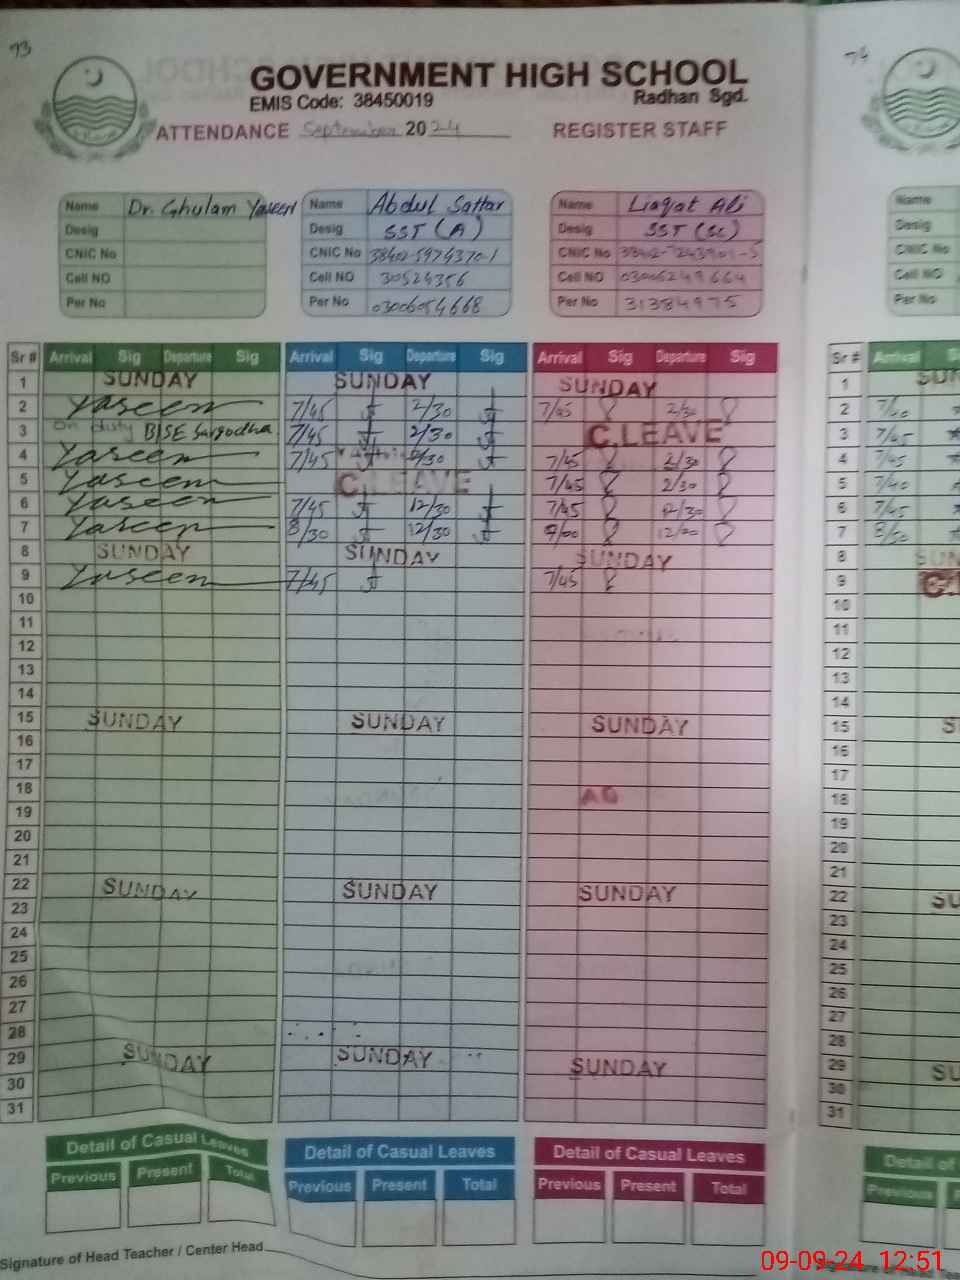 73
GOVERNMENT HIGH SCHOOL
EMIS Code: 38450019 Radhan Sgd.
ATTENDANCE September 2024 REGISTER STAFF
Name Dr. Ghulam Yaseen Name Abdul Sattar Name Liaqat Ali Name
Desig Desig SST (A) Desig SST (SC) Desig
CNIC No CNIC No 38402-5974370-1 CNIC No CNIC No
Cell NO Cell NO 30524356 Cell NO 03006249664 Cell NO
Per No Per No 03006054668 Per No 31384975 Per No
Sr # Arrival Sig Departure Sig Arrival Sig Departure Sig Arrival Sig Departure Sig Sr # Arrival
1 SUNDAY SUNDAY SUNDAY 1
2 Yaseen 7/45 2/30 7/45 2/30 2
3 On duty BISE Sargodha 7/45 2/30 C.LEAVE 3 7/45
4 Yaseen 7/45 2/30 7/45 2/30 4 7/45
5 Yaseen C.LEAVE 7/45 2/30 5
6 Yaseen 7/45 12/30 7/45 12/30 6 7/45
7 Yaseen 8/30 12/30 7
8 SUNDAY SUNDAY SUNDAY 8
9 Yaseen 7/45 7/45 9
10 10
11 11
12 12
13 13
14 14
15 SUNDAY SUNDAY SUNDAY 15
16 16
17 17
18 18
19 19
20 20
21 21
22 SUNDAY SUNDAY SUNDAY 22
23 23
24 24
25 25
26 26
27 27
28 28
29 SUNDAY SUNDAY SUNDAY 29
30 30
31 31
Detail of Casual Leaves Detail of Casual Leaves Detail of Casual Leaves Detail of
Previous Present Total Previous Present Total Previous Present Total Previous
Signature of Head Teacher / Center Head
09-09-24 12:51